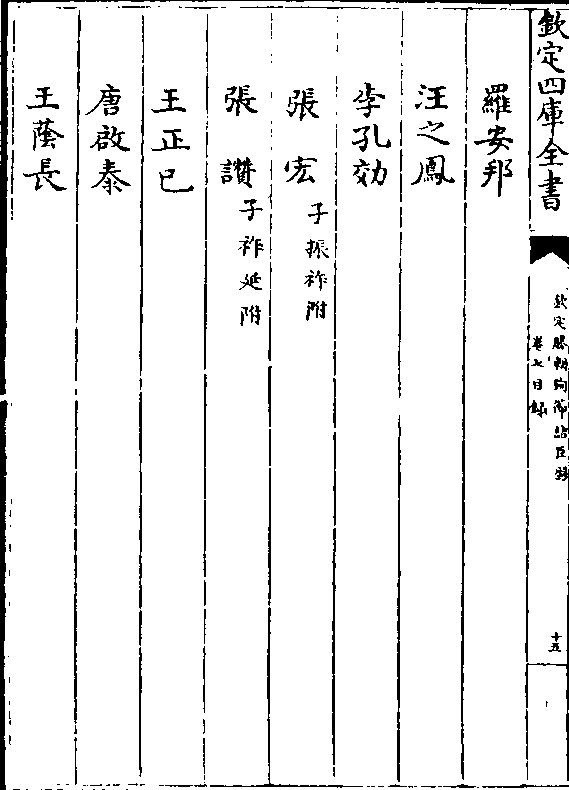 欽定四庫全書
欽定勝朝殉節諸臣錄
卷七目錄
十五
羅安邦
汪之鳳
李孔効
張宏 子振祚附
張讚 子祚延附
王正已
唐啟泰
王蔭長